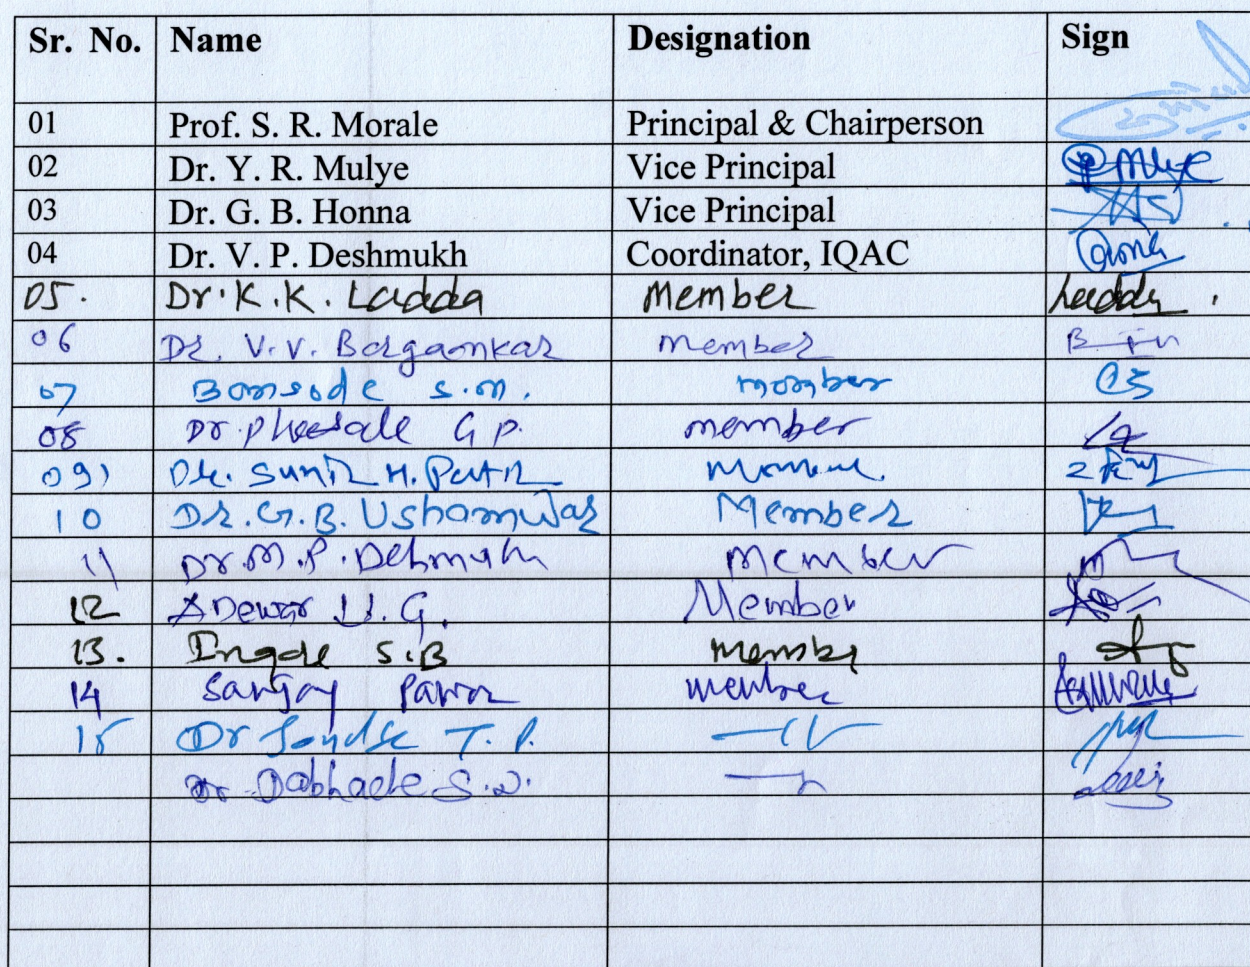 Sr. No. Name Designation Sign
01 Prof. S. R. Morale Principal & Chairperson
02 Dr. Y. R. Mulye Vice Principal Mulye
03 Dr. G. B. Honna Vice Principal
04 Dr. V. P. Deshmukh Coordinator, IQAC
05. Dr. K. K. Ladda Member Ladda
06 Dr. V. V. Borgaonkar Member
07 Bansode S. M. member
08 Dr. G P. member
09) Dr. Sunil H. Patil Member
10 Dr. G. B. Ushamwar Member
11 Dr. M. P. Dehmukh Member
12 U. G. Member
13. Ingale S.B member
14 Sanjay Pawar member
15 Dr T. P. —11—
Dr Dabhade S. D. —11—